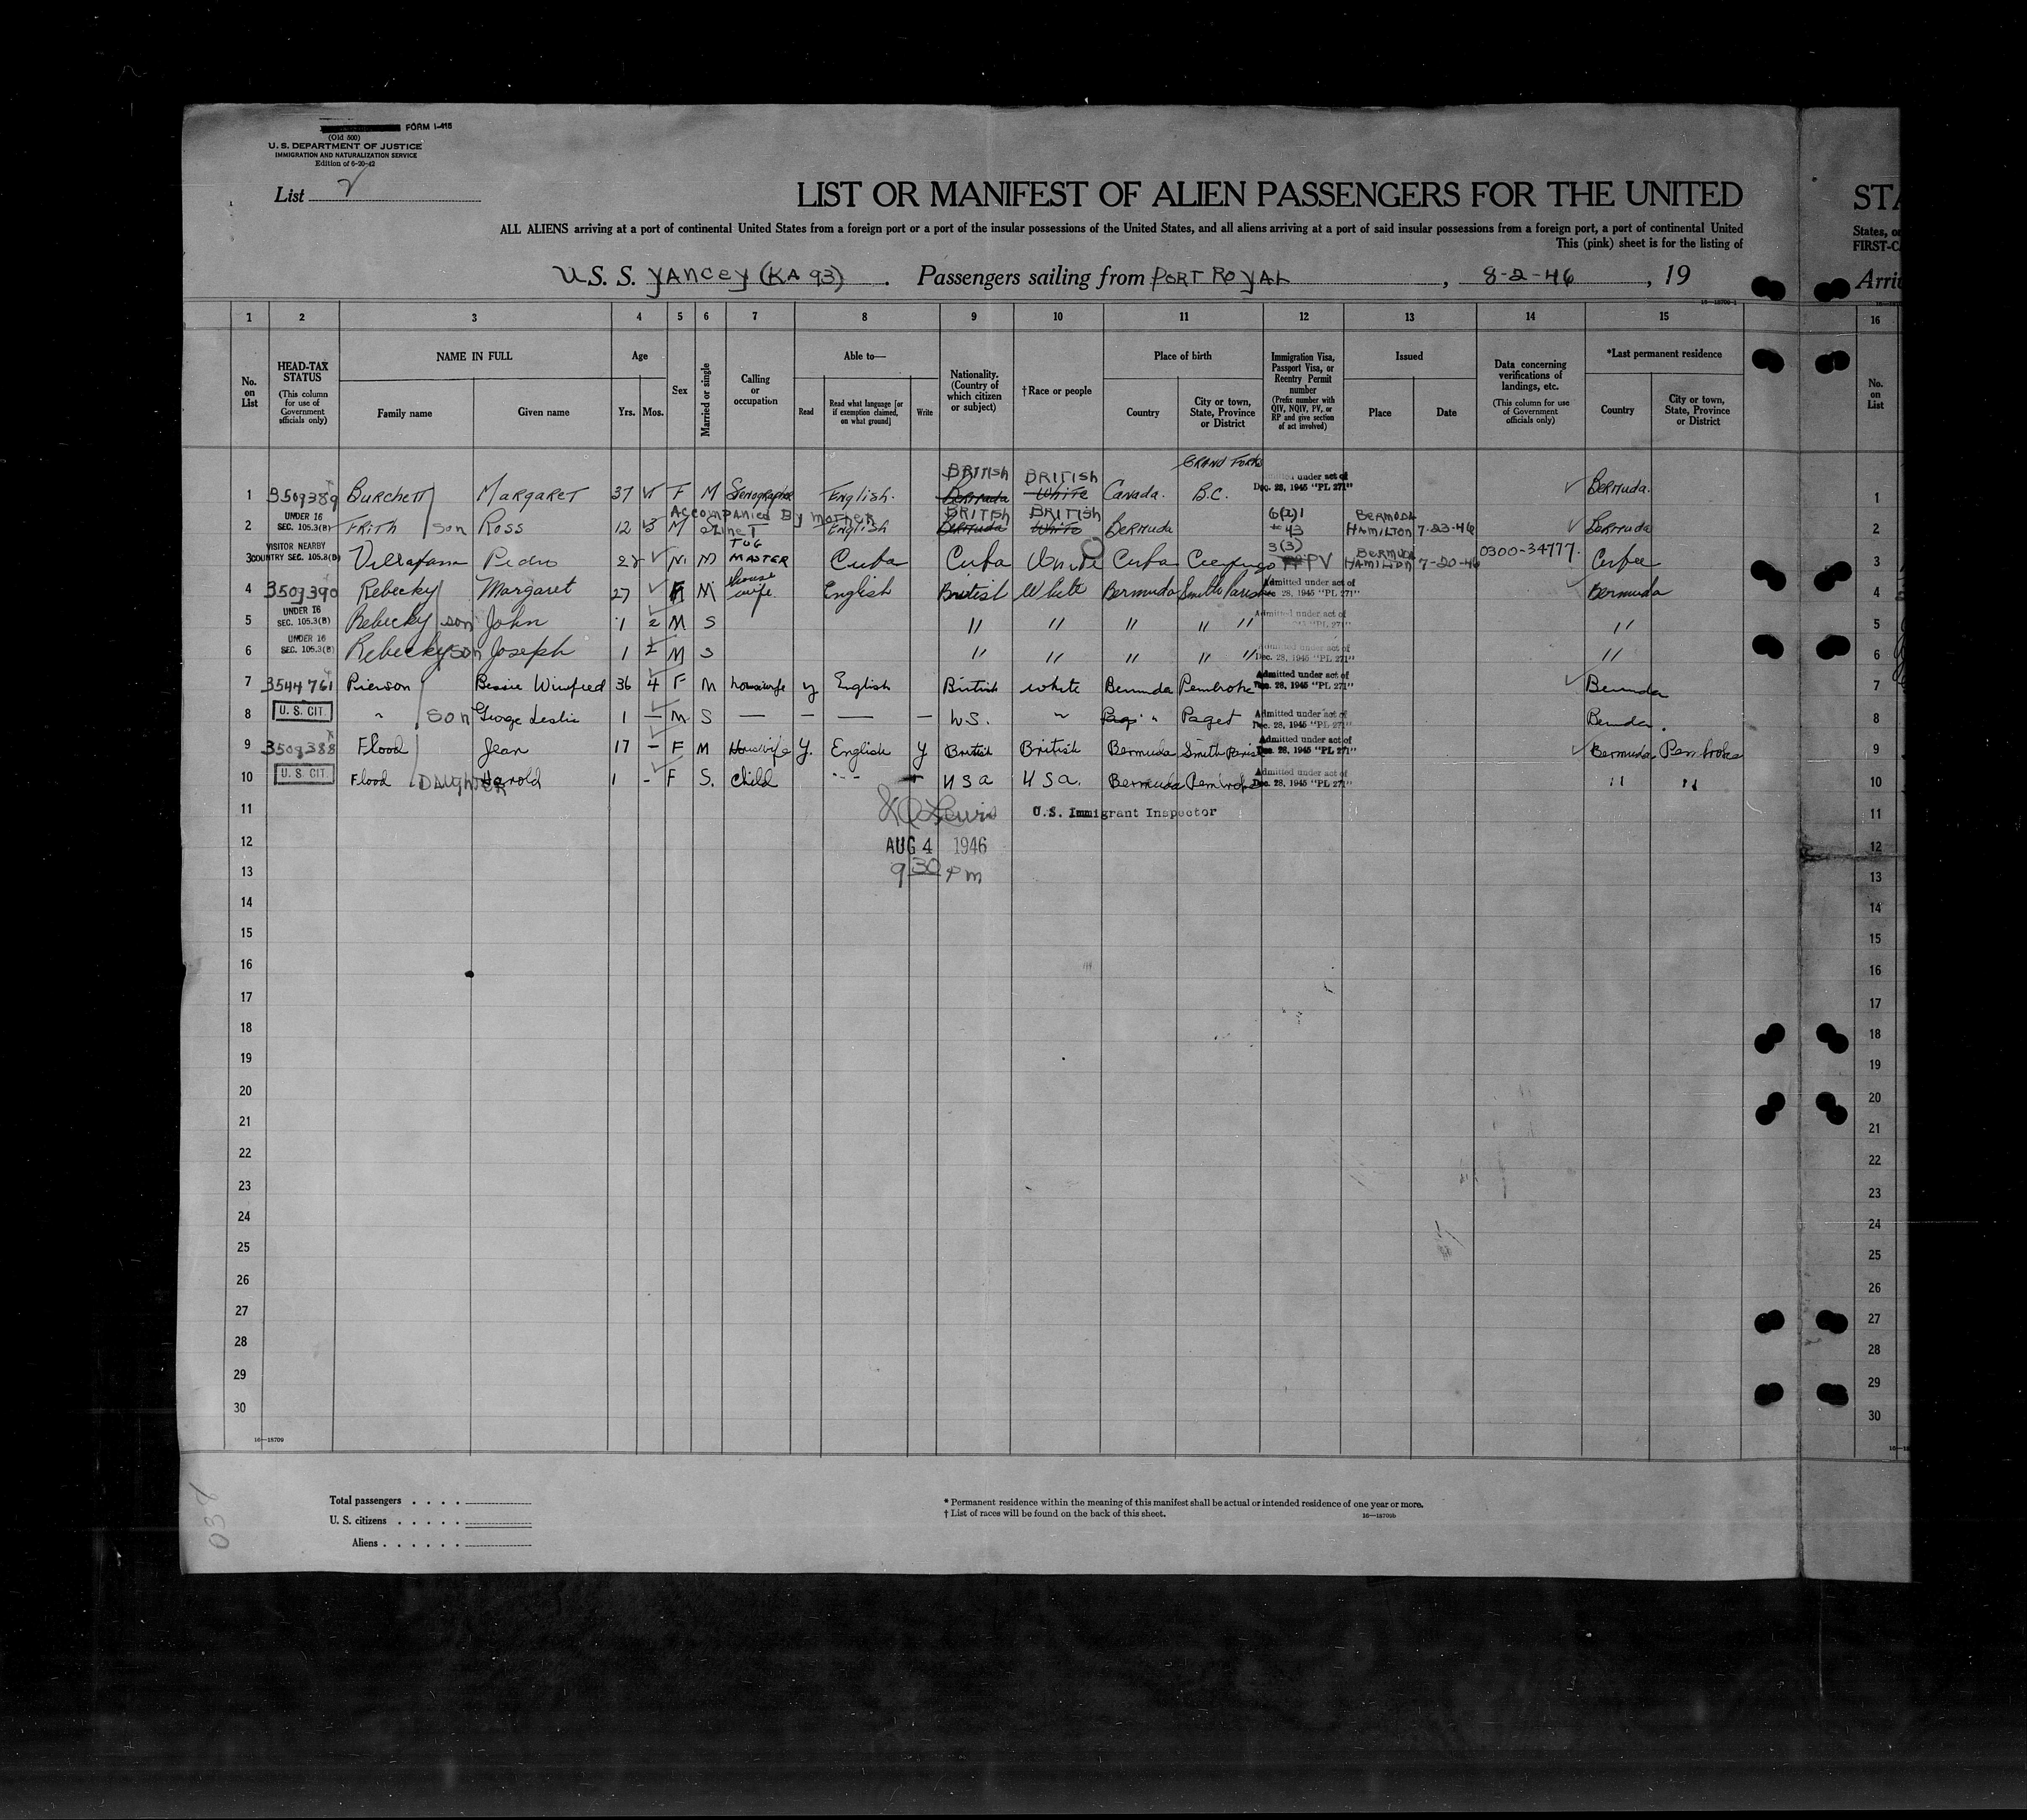 FORM I-415
(Old 500)
U. S. DEPARTMENT OF JUSTICE
IMMIGRATION AND NATURALIZATION SERVICE
Edition of 6-20-42
List 2
LIST OR MANIFEST OF ALIEN PASSENGERS FOR THE UNITED
STA
ALL ALIENS arriving at a port of continental United States from a foreign port or a port of the insular possessions of the United States, and all aliens arriving at a port of said insular possessions from a foreign port, a port of continental United
States, o
This (pink) sheet is for the listing of
FIRST-C
U.S. S. YANCEY (KA 93). Passengers sailing from PORT ROYAL, 8-2-46, 19
Arri
1 2 3 4 5 6 7 8 9 10 11 12 13 14 15 16
No. on List
HEAD-TAX STATUS
(This column for use of Government officials only)
NAME IN FULL
Family name
Given name
Age
Yrs.
Mos.
Sex
Married or single
Calling or occupation
Able to—
Read
Read what language [or if exemption claimed, on what ground]
Write
Nationality. (Country of which citizen or subject)
†Race or people
Place of birth
Country
City or town, State, Province or District
Immigration Visa, Passport Visa, or Reentry Permit number
(Prefix number with QIV, NQIV, PV, or RP and give section of act involved)
Issued
Place
Date
Data concerning verifications of landings, etc.
(This column for use of Government officials only)
*Last permanent residence
Country
City or town, State, Province or District
No. on List
1 3509389 Burchett Margaret 37 F M Stenographer English. BRITISH Bermuda BRITISH White Canada. GRAND FORKS B.C. under act of Dec. 28, 1945 "PL 271" Bermuda. 1
Accompanied By mother
2 UNDER 16 SEC. 105.3(B) Frith son Ross 12 3 M S English BRITISH Bermuda BRITISH White Bermuda 43 BERMUDA HAMILTON 7-23-46 Bermuda 2
3 VISITOR NEARBY COUNTRY SEC. 105.3(D) Pedro M M TUG MASTER Cuba Cuba White Cuba 3(3) PV BERMUDA HAMILTON 7-20-46 0300-34777. 3
4 3509390 Rebecky Margaret 27 F M house wife English British White Bermuda Smiths Parish Admitted under act of Dec. 28, 1945 "PL 271" Bermuda 4
5 UNDER 16 SEC. 105.3(B) Rebecky son John 1 2 M S " " " " " Admitted under act of "PL 271" " 5
6 UNDER 16 SEC. 105.3(B) Rebecky son Joseph 1 2 M S " " " " " Admitted under act of Dec. 28, 1945 "PL 271" " 6
7 3544761 Pierson Bessie Winifred 36 4 F M housewife y English British white Bermuda Pembroke Admitted under act of Dec. 28, 1945 "PL 271" Bermuda 7
8 U. S. CIT. " son George Leslie 1 — M S — — — — U.S. " " Paget Admitted under act of Dec. 28, 1945 "PL 271" Bermuda 8
9 3509388 Flood Jean 17 - F M Housewife y. English y British British Bermuda Smith Parish Admitted under act of Dec. 28, 1945 "PL 271" Bermuda Pembroke 9
10 U. S. CIT. Flood DAUGHTER Harold 1 - F S. Child - - USA USA. Bermuda Pembroke Admitted under act of Dec. 28, 1945 "PL 271" " " 10
11 Lewis U.S. Immigrant Inspector 11
12 AUG 4 1946 12
13 9 30 PM 13
14 14
15 15
16 16
17 17
18 18
19 19
20 20
21 21
22 22
23 23
24 24
25 25
26 26
27 27
28 28
29 29
30 30
16—18709
Total passengers . . . .
U. S. citizens . . . . .
Aliens . . . . . .
* Permanent residence within the meaning of this manifest shall be actual or intended residence of one year or more.
† List of races will be found on the back of this sheet.
16—18709b
038